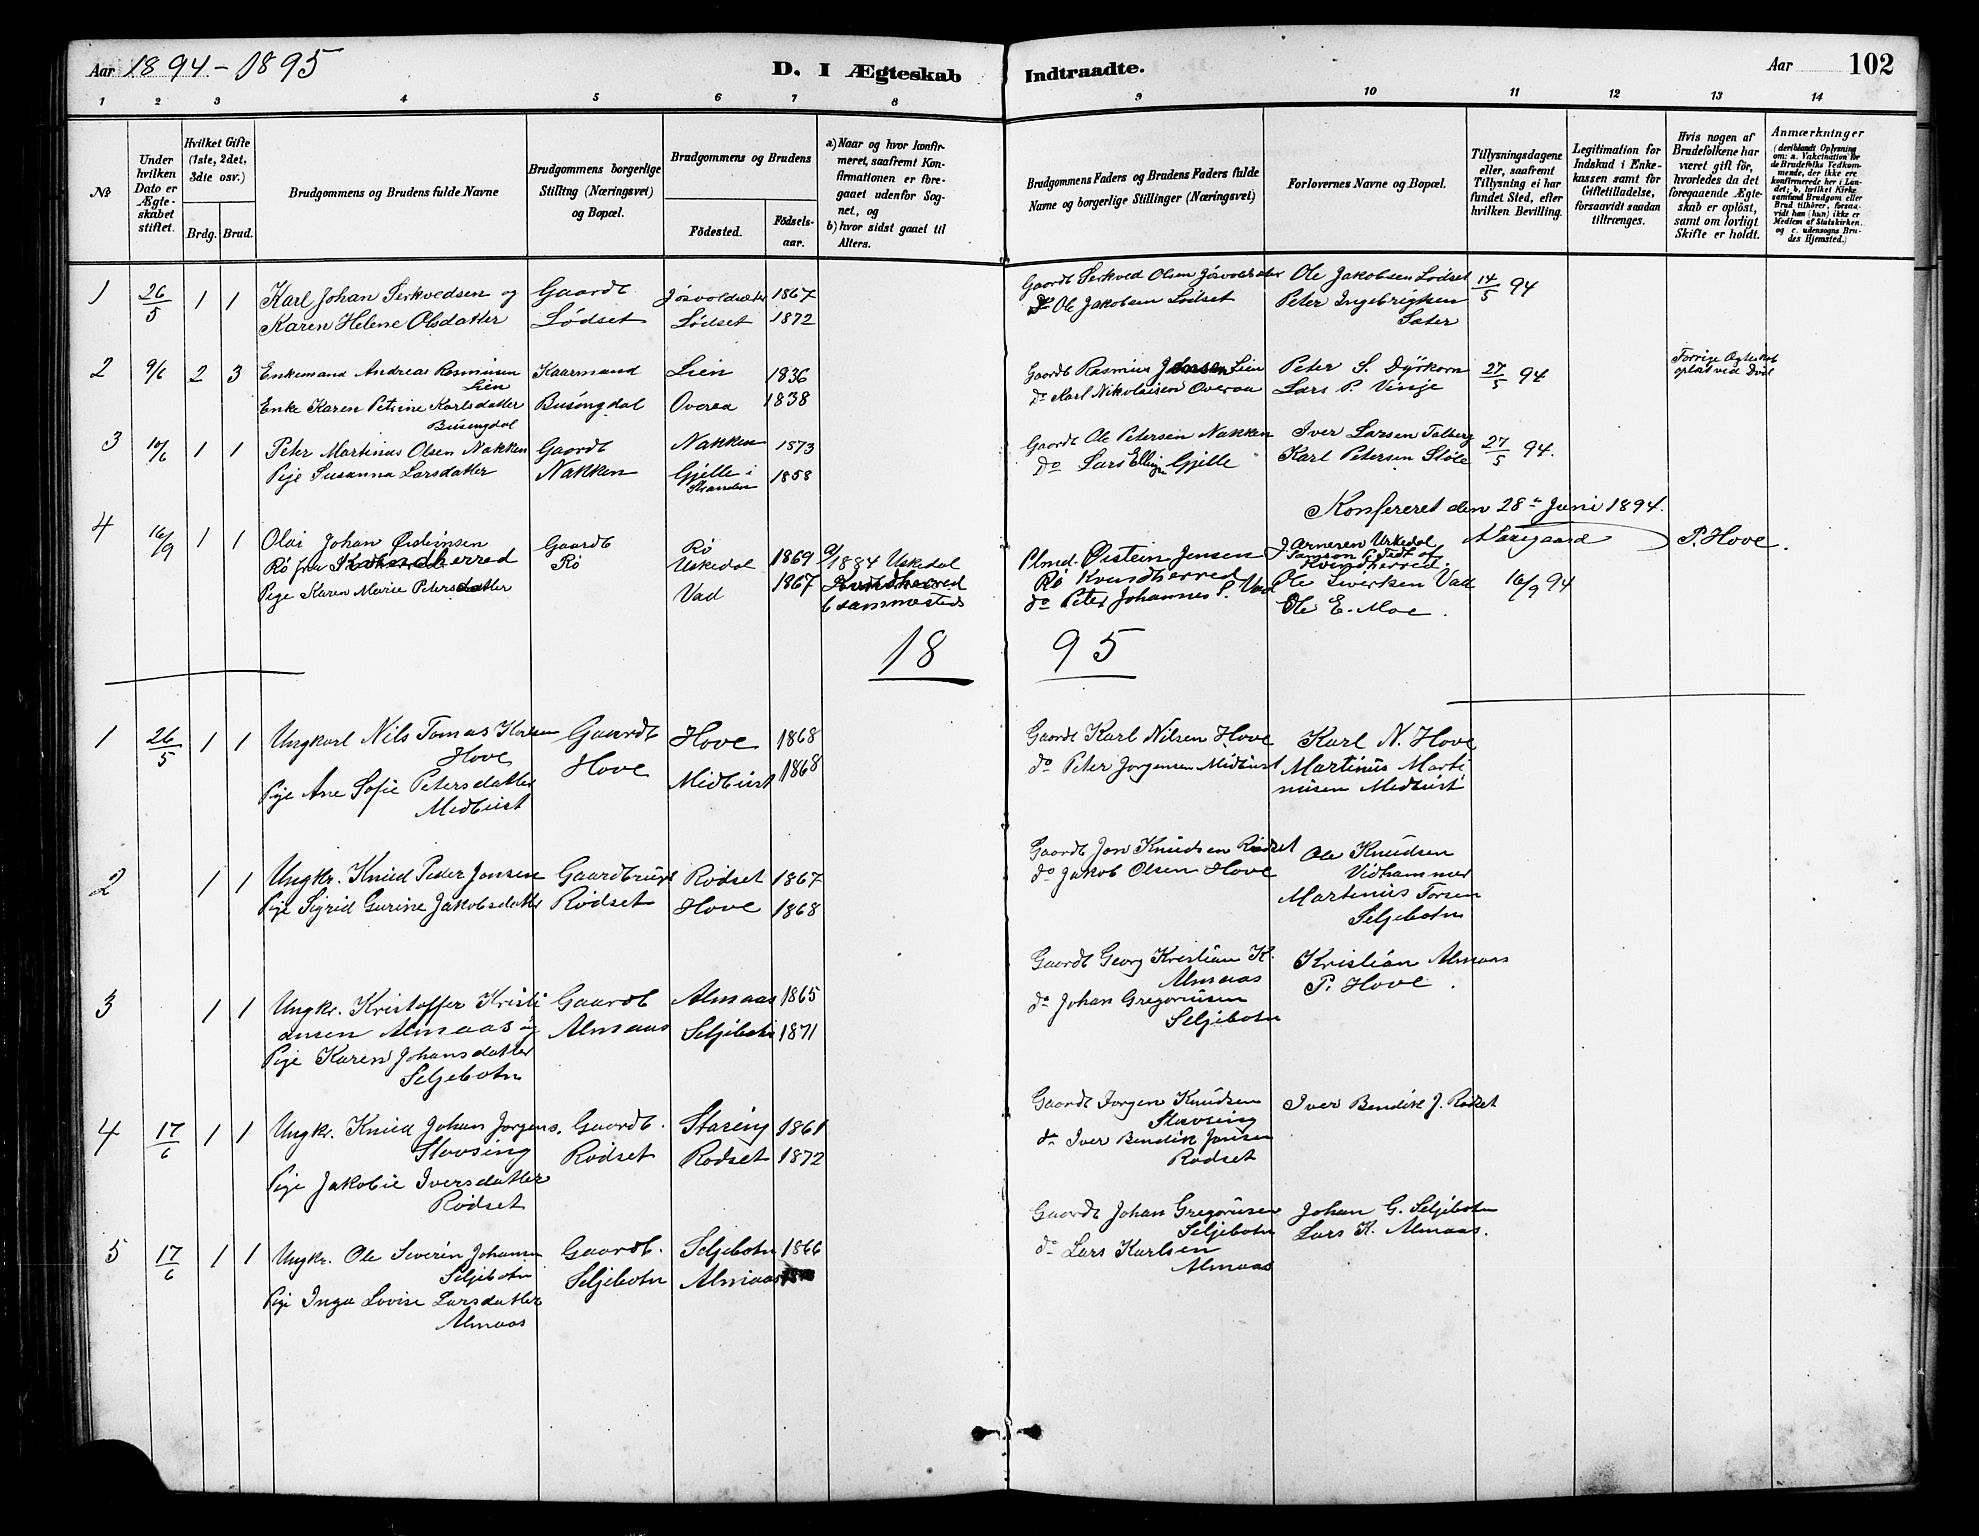 Aar 1894-1895
D. I Ægteskab
Indtraadte.
Aar
102
1 2 3 4 5 6 7 8 9 10 11 12 13 14
No
Under hvilken Dato er Ægteskabet stiftet.
Hvilket Gifte (1ste, 2det, 3die osv.)
Brdg. Brud.
Brudgommens og Brudens fulde Navne
Brudgommens borgerlige Stilling (Næringsvei) og Bopæl.
Brudgommens og Brudens
Födested.
Födsels-aar.
a) Naar og hvor konfirmeret, saafremt Konfirmationen er foregaaet udenfor Sognet, og
b) hvor sidst gaaet til Alters.
Brudgommens Faders og Brudens Faders fulde Navne og borgerlige Stillinger (Næringsvei)
Forlovernes Navne og Bopæl.
Tillysningsdagene eller, saafremt Tillysning ei har fundet Sted, efter hvilken Bevilling.
Legitimation for Indskud i Enkekassen samt for Giftetilladelse, forsaavidt saadan tiltrænges.
Hvis nogen af Brudefolkene har været gift för, hvorledes da det foregaaende Ægteskab er oplöst, samt om lovligt Skifte er holdt.
Anmærkninger
(deriblandt Oplysning om: a. Vakcination for de Brudefolks Vedkommende, der ikke ere konfirmerede her i Landet; b. hvilket Kirkesamfund Brudgom eller Brud tilhörer, forsaavidt han (hun) ikke er Medlem af Statskirken, og c. udensogns Brudes Hjemsted.)
1 26/5 1 1 Karl Johan Serkvedsen og Gaardb Jøsvoldsæter 1867 Gaardb Serkved Olsen Jøsvoldsæter Ole Jakobsen Lødset 14/5 94
Karen Helene Olsdatter Lødset Lødset 1872 do Ole Jakobsen Lødset Peter Ingebrigtsen
Sæter
2 9/6 2 3 Enkemand Andreas Rasmusen Kaarmand Lien 1836 Gaardb Rasmus Jensen Lien Peter S. Dyrkorn 27/5 94 Forrige Ægteskab
Lien opløst ved Død
Enke Karen Petrine Karlsdatter Busengdal Overaa 1838 do Karl Nikolaisen Overaa Lars P. Vinje
Busengdal
3 10/6 1 1 Peter Martinus Olsen Nakken Gaardb Nakken 1873 Gaardb Ole Petersen Nakken Iver Larsen Talberg 27/5 94.
Pige Susanna Larsdatter Nakken Gjelle i 1858 do Lars Ellings Gjelle Karl Petersen Støle
Stranden
Konfereret den 28de Juni 1894.
P. Hove.
4 16/9 1 1 Olai Johan Østeinsen Gaardb Rø
Rø fra Kvindherred Rø Uskedal 1869 1884 Uskedal Plmd. Øistein Jensen J. Arnesen Uskedal
Kvindherred Rø Kvindherred Samson P. Tedt af
Kvindherred.
Pige Karen Marie Petersdatter Vad 1867 b sammesteds do Peter Johannes S. Vad Ole Siverksen Vad 16/9 94
Ole E. Moe.
1895
1 26/5 1 1 Ungkarl Nils Tomas Karlsen Gaardb Hove 1868 Gaardb Karl Nilsen Hove Karl N. Hove
Hove Hove
Pige Ane Sofie Petersdatter Midtust 1868 do Peter Jørgensen Midtust Martinus Marti
Midtust nusen Midtust
2 1 1 Ungkr. Knud Peder Jonsen Gaardbruger Rødset 1867 Gaardb Jon Knudsen Rødset Ole Knudsen
Vidhammer
Pige Sigrid Gurine Jakobsdatter Rødset Hove 1868 do Jakob Olsen Hove Martinus Torsen
Seljebotn
3 1 1 Ungkr. Kristoffer Kristi Gaardb Almaas 1865 Gaardb Georg Kristian K. Kristian Almaas
ansen Almaas og Almaas Almaas P. Hove.
Pige Karen Johansdatter Seljebotn 1871 do Johan Gregoriusen
Seljebotn Seljebotn
4 17/6 1 1 Ungkr. Knud Johan Jørgens. Gaardb. Stavseng 1861 Gaardb Jørgen Knudsen Iver Bendik J. Rødset
Stavseng Rødset Stavseng
Pige Jakobie Iversdatter Rødset 1872 do Iver Bendik Jonsen
Rødset Rødset
5 17/6 1 1 Ungkr. Ole Severin Johansen Gaardb. Seljebotn 1866 Gaardb Johan Gregoriusen Johan G. Seljebotn
Seljebotn Seljebotn Seljebotn
Pige Inga Lovise Larsdatter Almaas do Lars Karlsen Lars K. Almaas.
Almaas Almaas